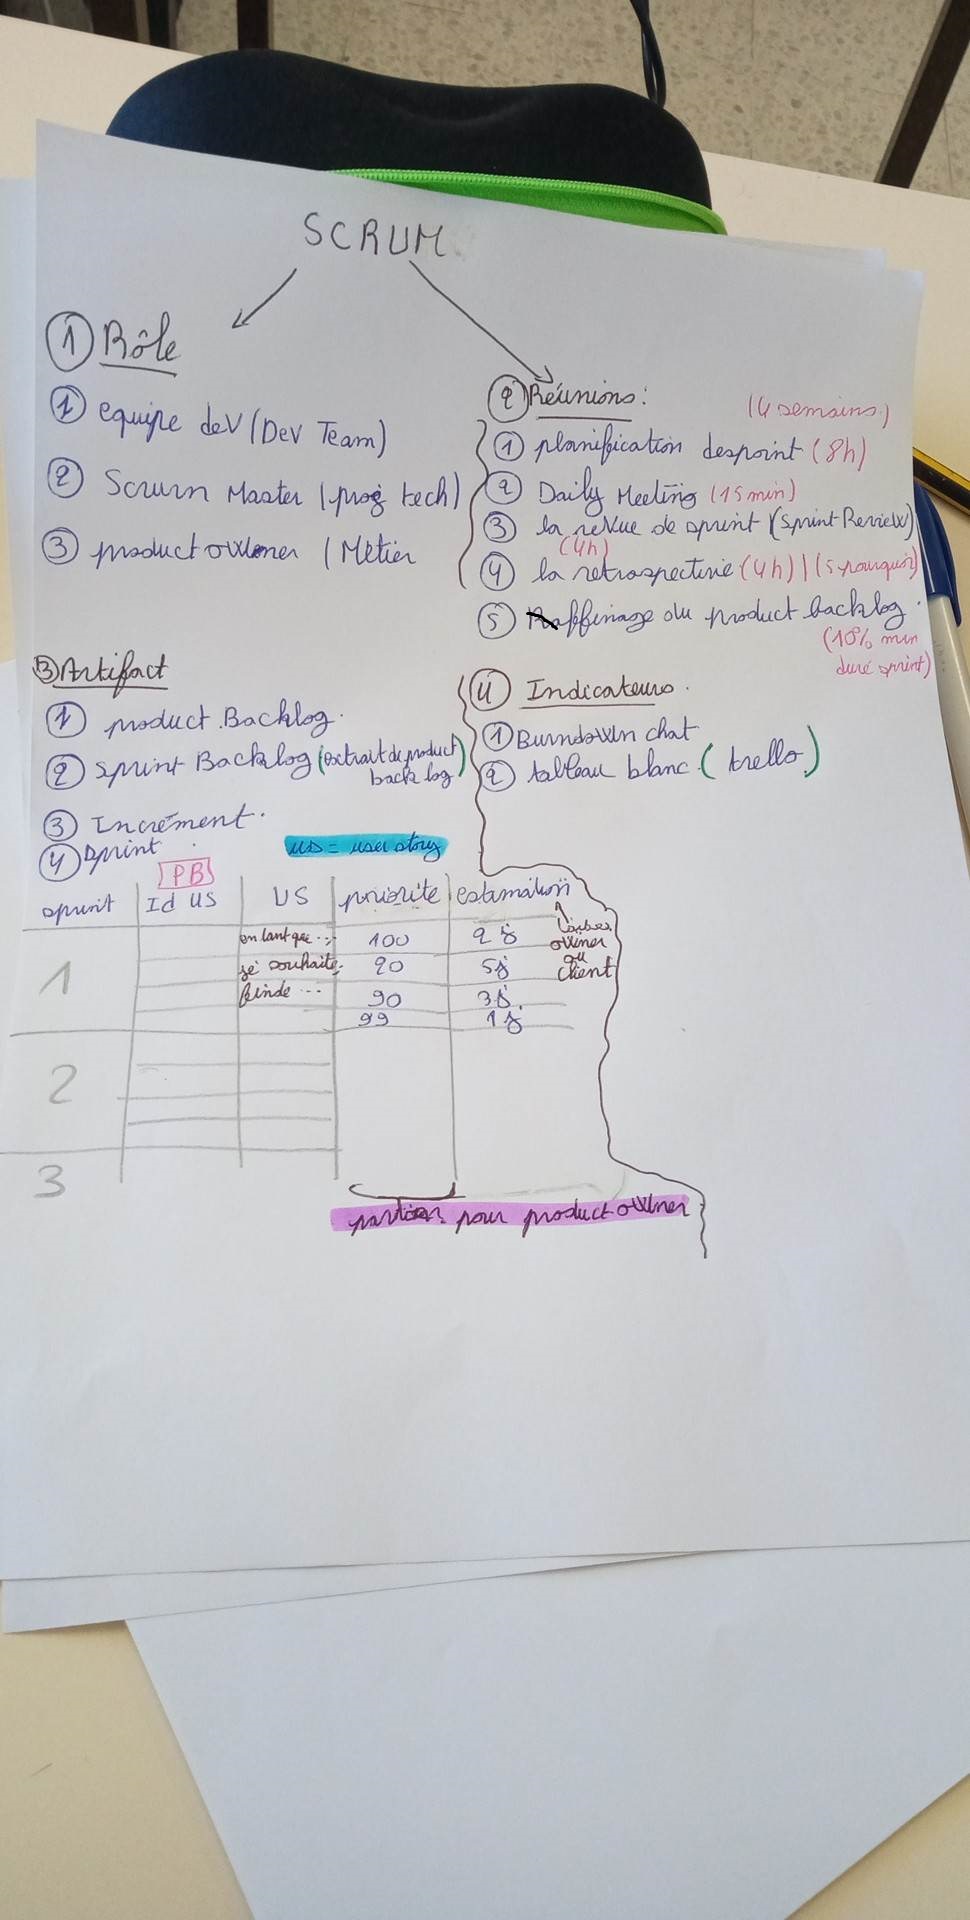 SCRUM
① Rôle
① equipe dev (Dev Team)
② Scrum Master (prog tech)
③ product owner (Métier
② Réunions :
(4 semains)
① planification desprint (8h)
② Daily Meeting (15 min)
③ la revue de sprint (Sprint Review)
(4h)
④ la retrospective (4h) | (5 pourquoi)
⑤ Raffinage du product backlog.
(10% min
duré sprint)
③ Artifact
① product Backlog.
② sprint Backlog (extrait de product
back log)
③ Incrément.
④ Sprint
④ Indicateurs.
① Burndown chat
② tableau blanc. (trello)
us = user story
PB
sprint Id US US priorité estimation
en tant que... 100 2j
je souhaite. 20 5j
finde ... 90 3j.
99 1j
owner
ou
client
1
2
3
pour product owner